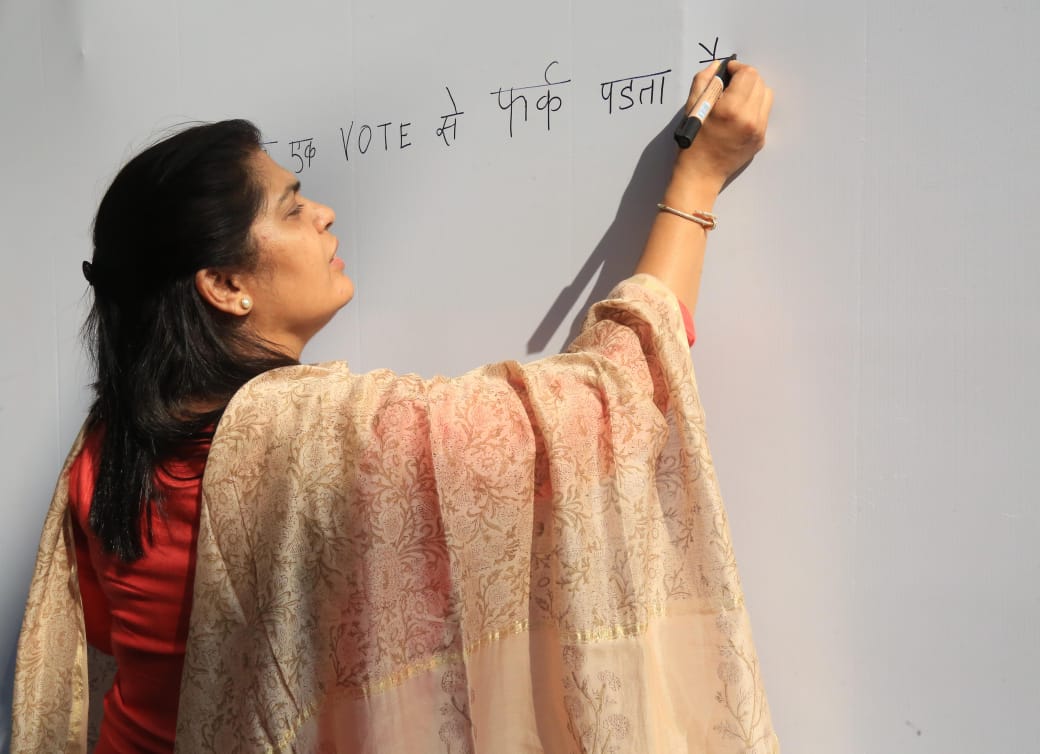 एक VOTE से फर्क पडता